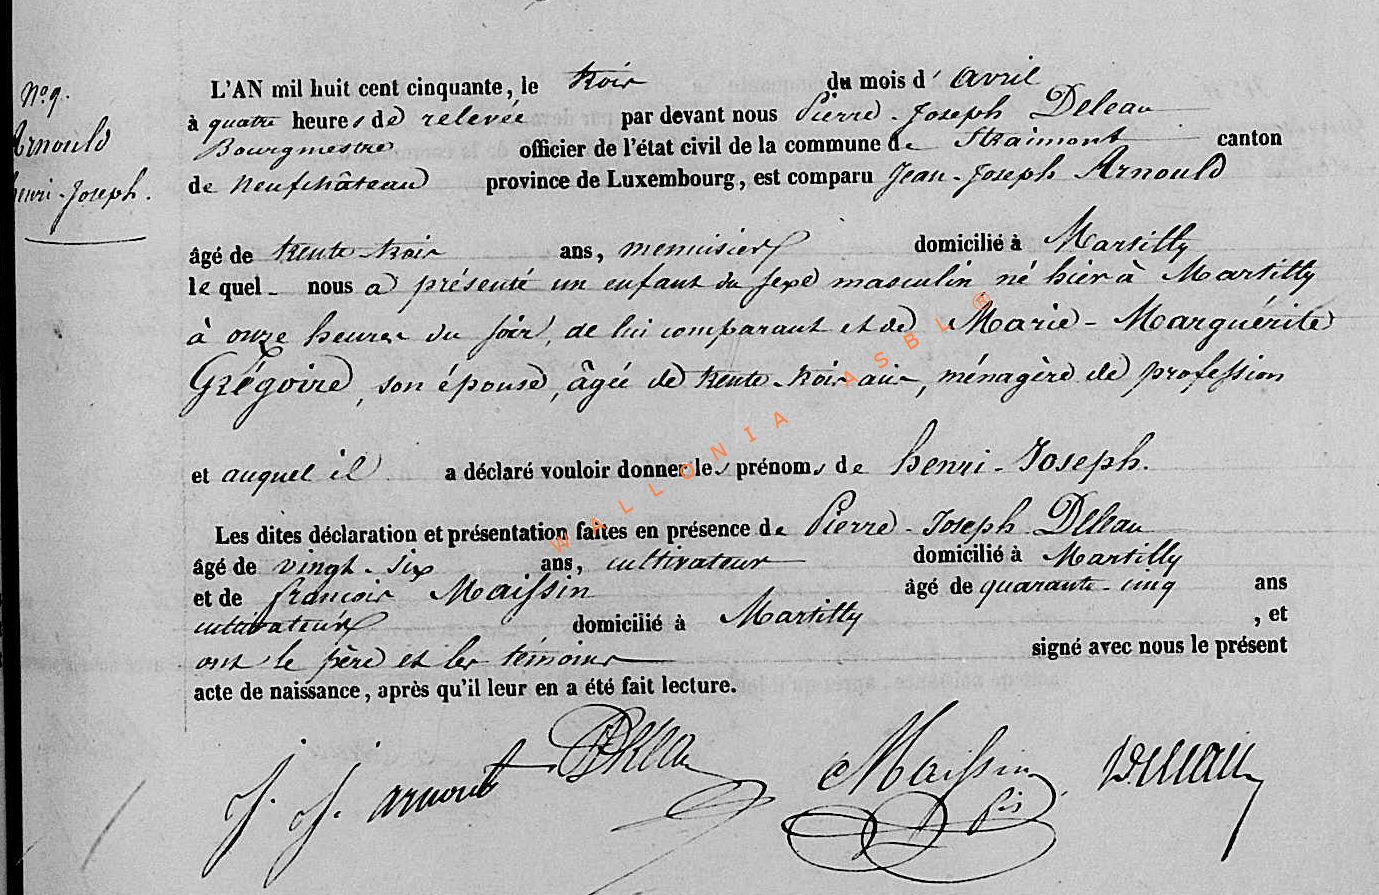 N° 9.
Arnould
henri-Joseph.
L'AN mil huit cent cinquante, le trois du mois d'avril
à quatre heures de relevée par devant nous Pierre-Joseph Deleau
Bourgmestre officier de l'état civil de la commune de Straimont canton
de Neufchâteau province de Luxembourg, est comparu Jean-Joseph Arnould
âgé de trente-trois ans, menuisier domicilié à Martilly
le quel nous a présenté un enfant du sexe masculin né hier à Martilly
à onze heures du soir, de lui comparant et de Marie-Marguérite
Grégoire, son épouse, âgée de trente-trois ans, ménagère de profession
et auquel il a déclaré vouloir donner les prénoms de henri-Joseph.
Les dites déclaration et présentation faites en présence de Pierre-Joseph Deleau
âgé de vingt-six ans, cultivateur domicilié à Martilly
et de francois Maissin âgé de quarante-cinq ans
cultivateur domicilié à Martilly , et
ont le père et les témoins signé avec nous le présent
acte de naissance, après qu'il leur en a été fait lecture.
J. J. arnould Deleau Maissin Deleau
fis
WALLONIA ASBL ®